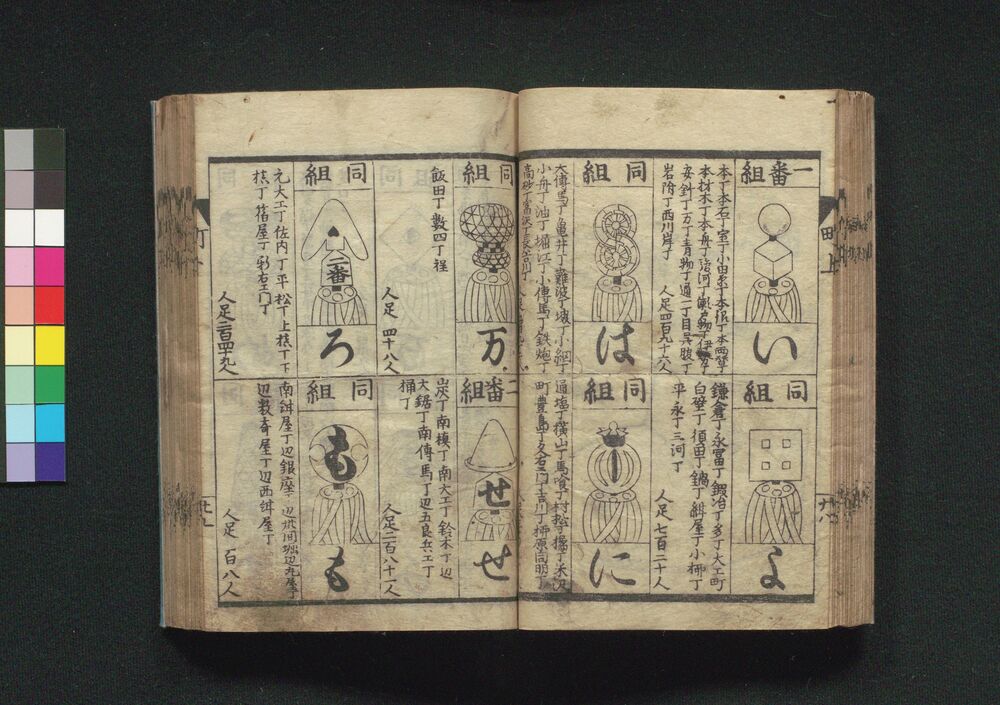 一番組
い
本丁本石丁室丁小田原丁本銀丁本両替丁
本材木丁本舟丁駿河丁瀬戸物丁
安針丁万丁青物丁通一丁目呉服丁
岩附丁西川岸丁
人足四百九十六人
同組
よ
鎌倉丁永冨丁鍛冶丁多丁大工町
白壁丁須田丁鍋丁紺屋丁小柳丁
平永丁三河丁
人足七百二十人
同組
は
大傳馬丁亀井丁難波丁堺丁小網丁
小舟丁油丁堀江丁小傳馬丁鉄炮丁
高砂丁冨沢丁長谷川丁
同組
に
通塩丁横山丁馬喰丁村松丁橘丁矢ノ沢
町豊島丁久右エ門丁吉川丁柳原同朋丁
同組
万
飯田丁数四丁程
人足四十八人
二番組
せ
せ
炭丁南槙丁南大工丁鈴木丁辺
大鋸丁南傳馬丁辺五良兵エ丁
桶丁
人足二百八十一人
同組
二番
ろ
元大工丁佐内丁平松丁上槙丁下
槙丁箔屋丁新右エ門丁
人足二百四十九人
同組
も
も
南紺屋丁辺銀座丁辺
辺数寄屋丁辺西紺屋丁
人足百八人
町上
廿八
廿九